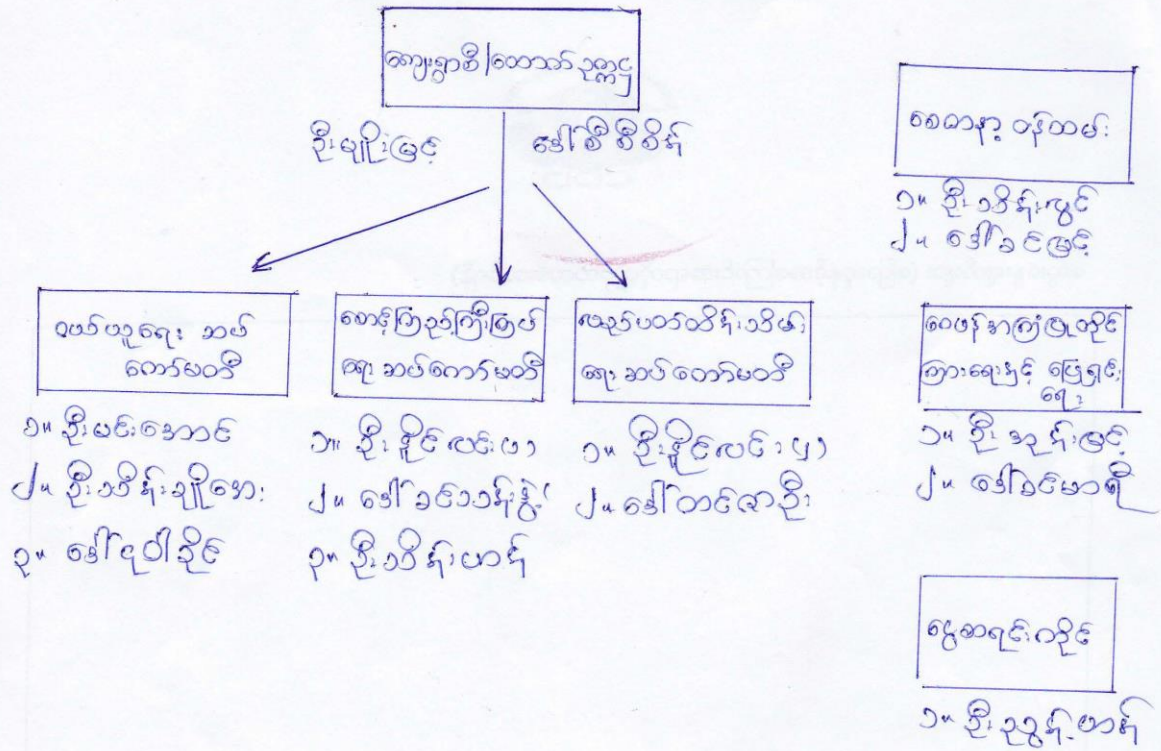 ကျေးရွာစီ/ထောက် ဥက္ကဋ္ဌ
ဦးမျိုးမြင့်
ဒေါ်စီစီစိန်
ဝယ်ယူရေး ဆပ်
ကော်မတီ
၁။ ဦးမင်းအောင်
၂။ ဦးသိန်းချိုအေး
၃။ ဒေါ်ငုဝါခိုင်
စောင့်ကြည့်ကြီးကြပ်
ရေး ဆပ်ကော်မတီ
၁။ ဦးနိုင်လင်း (၁)
၂။ ဒေါ်ခင်သန်းနွဲ့
၃။ ဦးသိန်းဟန်
လည်ပတ်ထိန်းသိမ်း
ရေး ဆပ်ကော်မတီ
၁။ ဦးနိုင်လင်း
၂။ ဒေါ်တင်ဇာဦး
စေတနာ့ ဝန်ထမ်း
၁။ ဦးသိန်းလွင်
၂။ ဒေါ်ခင်မြင့်
ဝေဖန်အကြံပြုတိုင်
ကြားရေးနှင့် ဖြေရှင်း
ရေး
၁။ ဦးအုန်းမြင့်
၂။ ဒေါ်ခင်မာရီ
ငွေစာရင်းကိုင်
၁။ ဦးဥာွန့်ဟန်